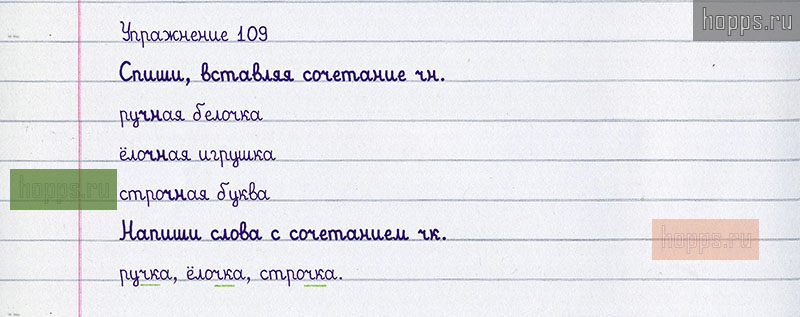 hopps.ru
Упражнение 109
Спиши, вставляя сочетание чн.
ручная белочка
ёлочная игрушка
hopps.ru
строчная буква
Напиши слова с сочетанием чк.
hopps.ru
ручка, ёлочка, строчка.